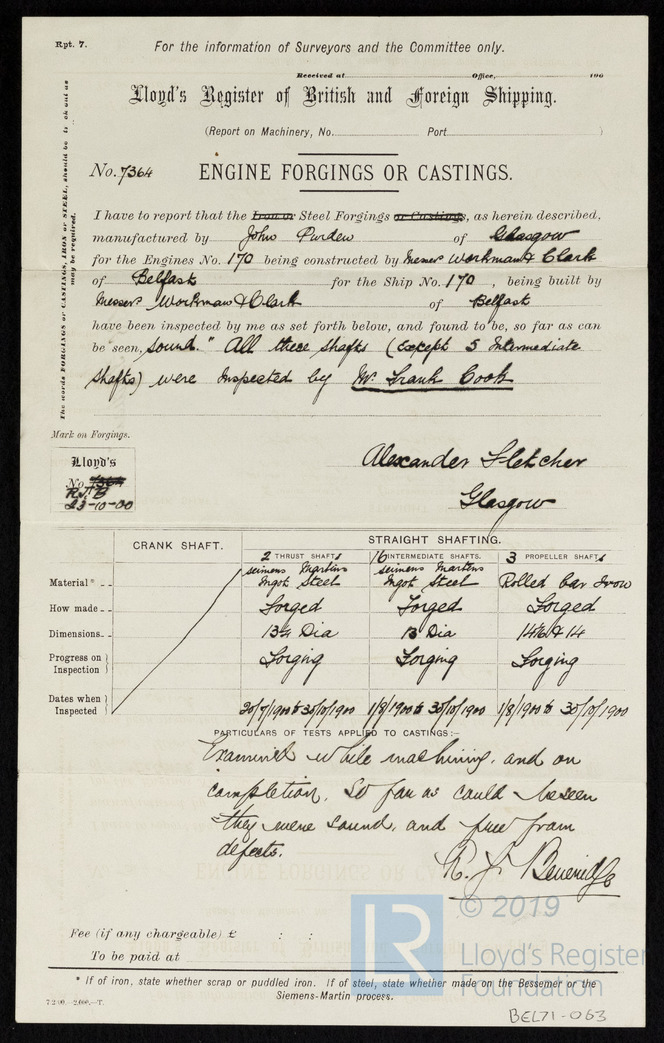 Rpt. 7.
For the information of Surveyors and the Committee only.
Received at Office, 190
Lloyd's Register of British and Foreign Shipping.
(Report on Machinery, No. Port )
No. 7364 ENGINE FORGINGS OR CASTINGS.
The words FORGINGS or CASTINGS, IRON or STEEL, should be
may be required.
I have to report that the Iron or Steel Forgings or Castings, as herein described,
manufactured by John Purden of Glasgow
for the Engines No. 170 being constructed by Messrs Workman & Clark
of Belfast for the Ship No. 170, being built by
Messrs Workman & Clark of Belfast
have been inspected by me as set forth below, and found to be, so far as can
be seen, sound." All these shafts (Except 5 Intermediate
shafts) were Inspected by Mr Frank Cook
Mark on Forgings.
Lloyd's
No. 7364
R.J.B
23-10-00
Alexander Fletcher
Glasgow
CRANK SHAFT. STRAIGHT SHAFTING.
2 THRUST SHAFTs 16 INTERMEDIATE SHAFTS. 3 PROPELLER SHAFTs
Material* Seimens Martins Ingot Steel Seimens Martens Ingot Steel Rolled bar Iron
How made Forged Forged Forged
Dimensions 13¼ Dia 13 Dia 14⅛ & 14
Progress on Inspection Forging Forging Forging
Dates when Inspected 20/7/1900 to 30/10/1900 1/8/1900 to 30/10/1900 1/8/1900 to 30/10/1900
PARTICULARS OF TESTS APPLIED TO CASTINGS:—
Examined while machining, and on
completion. So far as could be seen
they were sound, and free from
defects.
R. J. Beveridge
Fee (if any chargeable) £ : :
To be paid at
* If of iron, state whether scrap or puddled iron. If of steel, state whether made on the Bessemer or the
Siemens-Martin process.
7 2 00.—2,000.—T.
LR
© 2019
Lloyd's Register
Foundation
BEL71-063